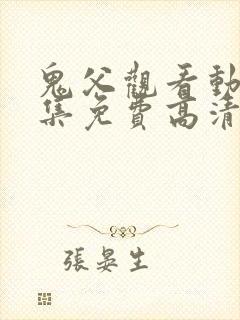 鬼父觀看動
集免費高清
張晏生